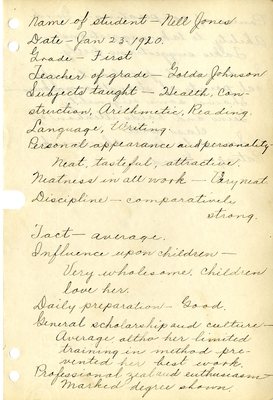 Name of student - Nell Jones
Date - Jan 23 - 1920.
Grade - First
Teacher of grade - Golda Johnson
Subjects taught - Health, Con-
struction, Arithmetic, Reading.
Language, Writing.
Personal appearance and personality -
Neat, tasteful, attractive.
Neatness in all work - Very neat.
Discipline - comparatively
strong.
Tact - average.
Influence upon children -
Very wholesome, children
love her.
Daily preparation - Good.
General scholarship and culture -
Average altho her limited
training in method pre-
vented her best work.
Professional zeal and enthusiasm -
Marked degree shown.